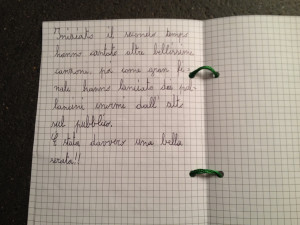 Iniziato il secondo tempo
hanno cantato altre bellissime
canzoni, poi come gran fi=
nale hanno lanciato dei pal=
loncini enormi dall'alto
sul pubblico.
È stata davvero una bella
serata!!